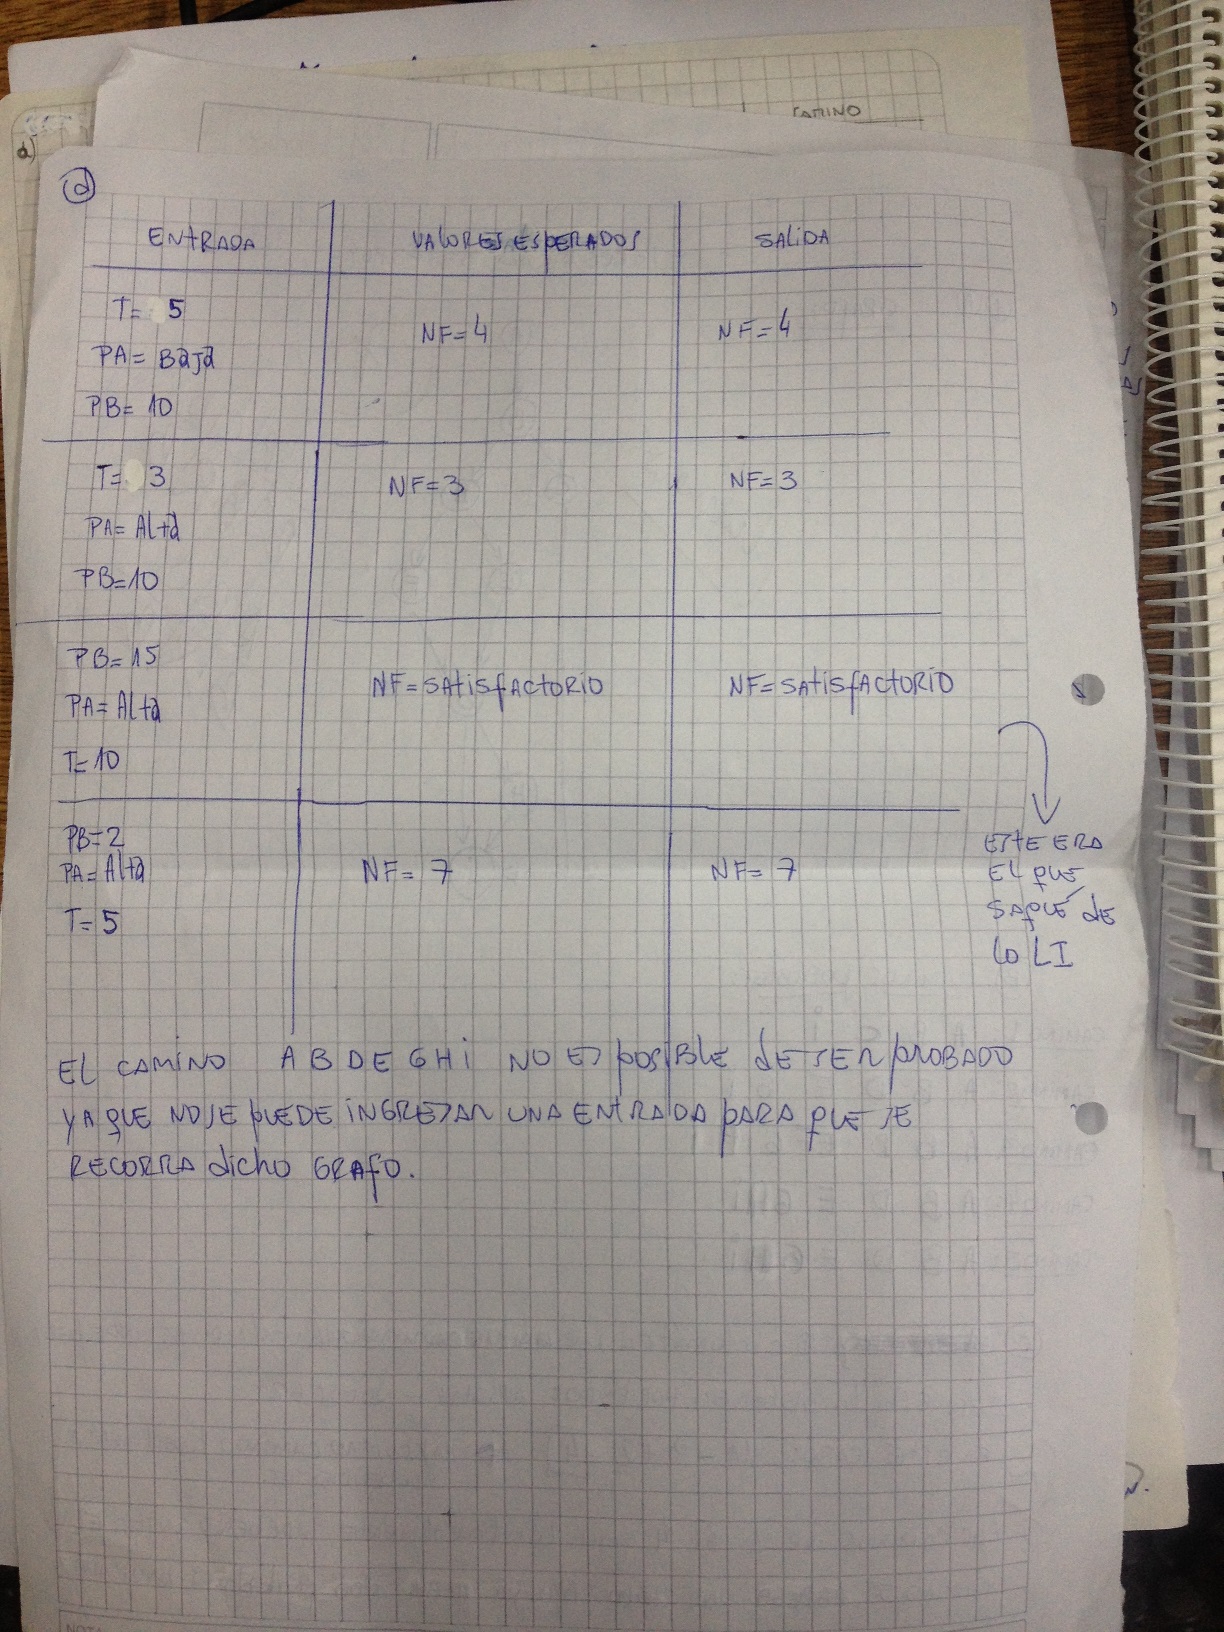 CAMINO
a)
d
ENTRADA VALORES ESPERADOS SALIDA
T= 5
PA= Baja
PB= 10
NF=4
NF=4
T= 3
PA= Alta
PB=10
NF=3
NF=3
PB=15
PA= Alta
T=10
NF=SAtisfActorio
NF=SAtisfActorio
PB=2
PA=Alta
T=5
NF= 7
NF= 7
ESTE ERA
EL QUE
SAQUÉ de
lo LI
EL CAMINO A B D E G H i NO ES POSIBLE de SER PROBADO
YA QUE NO SE PUEDE INGRESAR UNA ENTRADA PARA QUE SE
RECORRA dicho GRAfO.